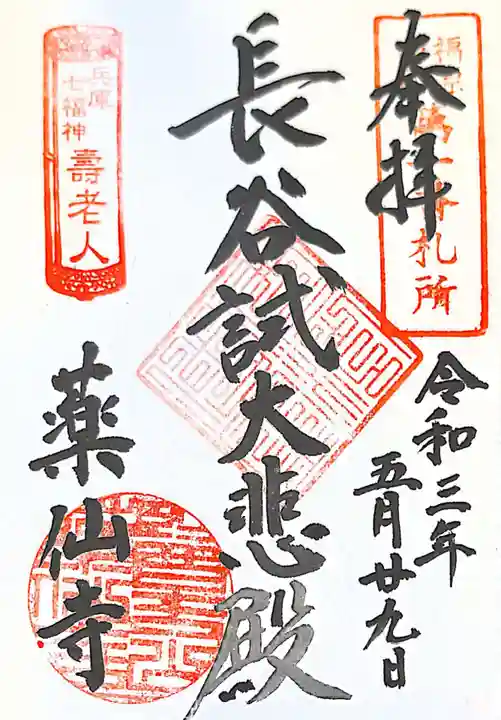 奉拝
札所
令和三年
五月廿九日
長谷試大悲殿
兵庫
七福神
壽老人
薬仙寺